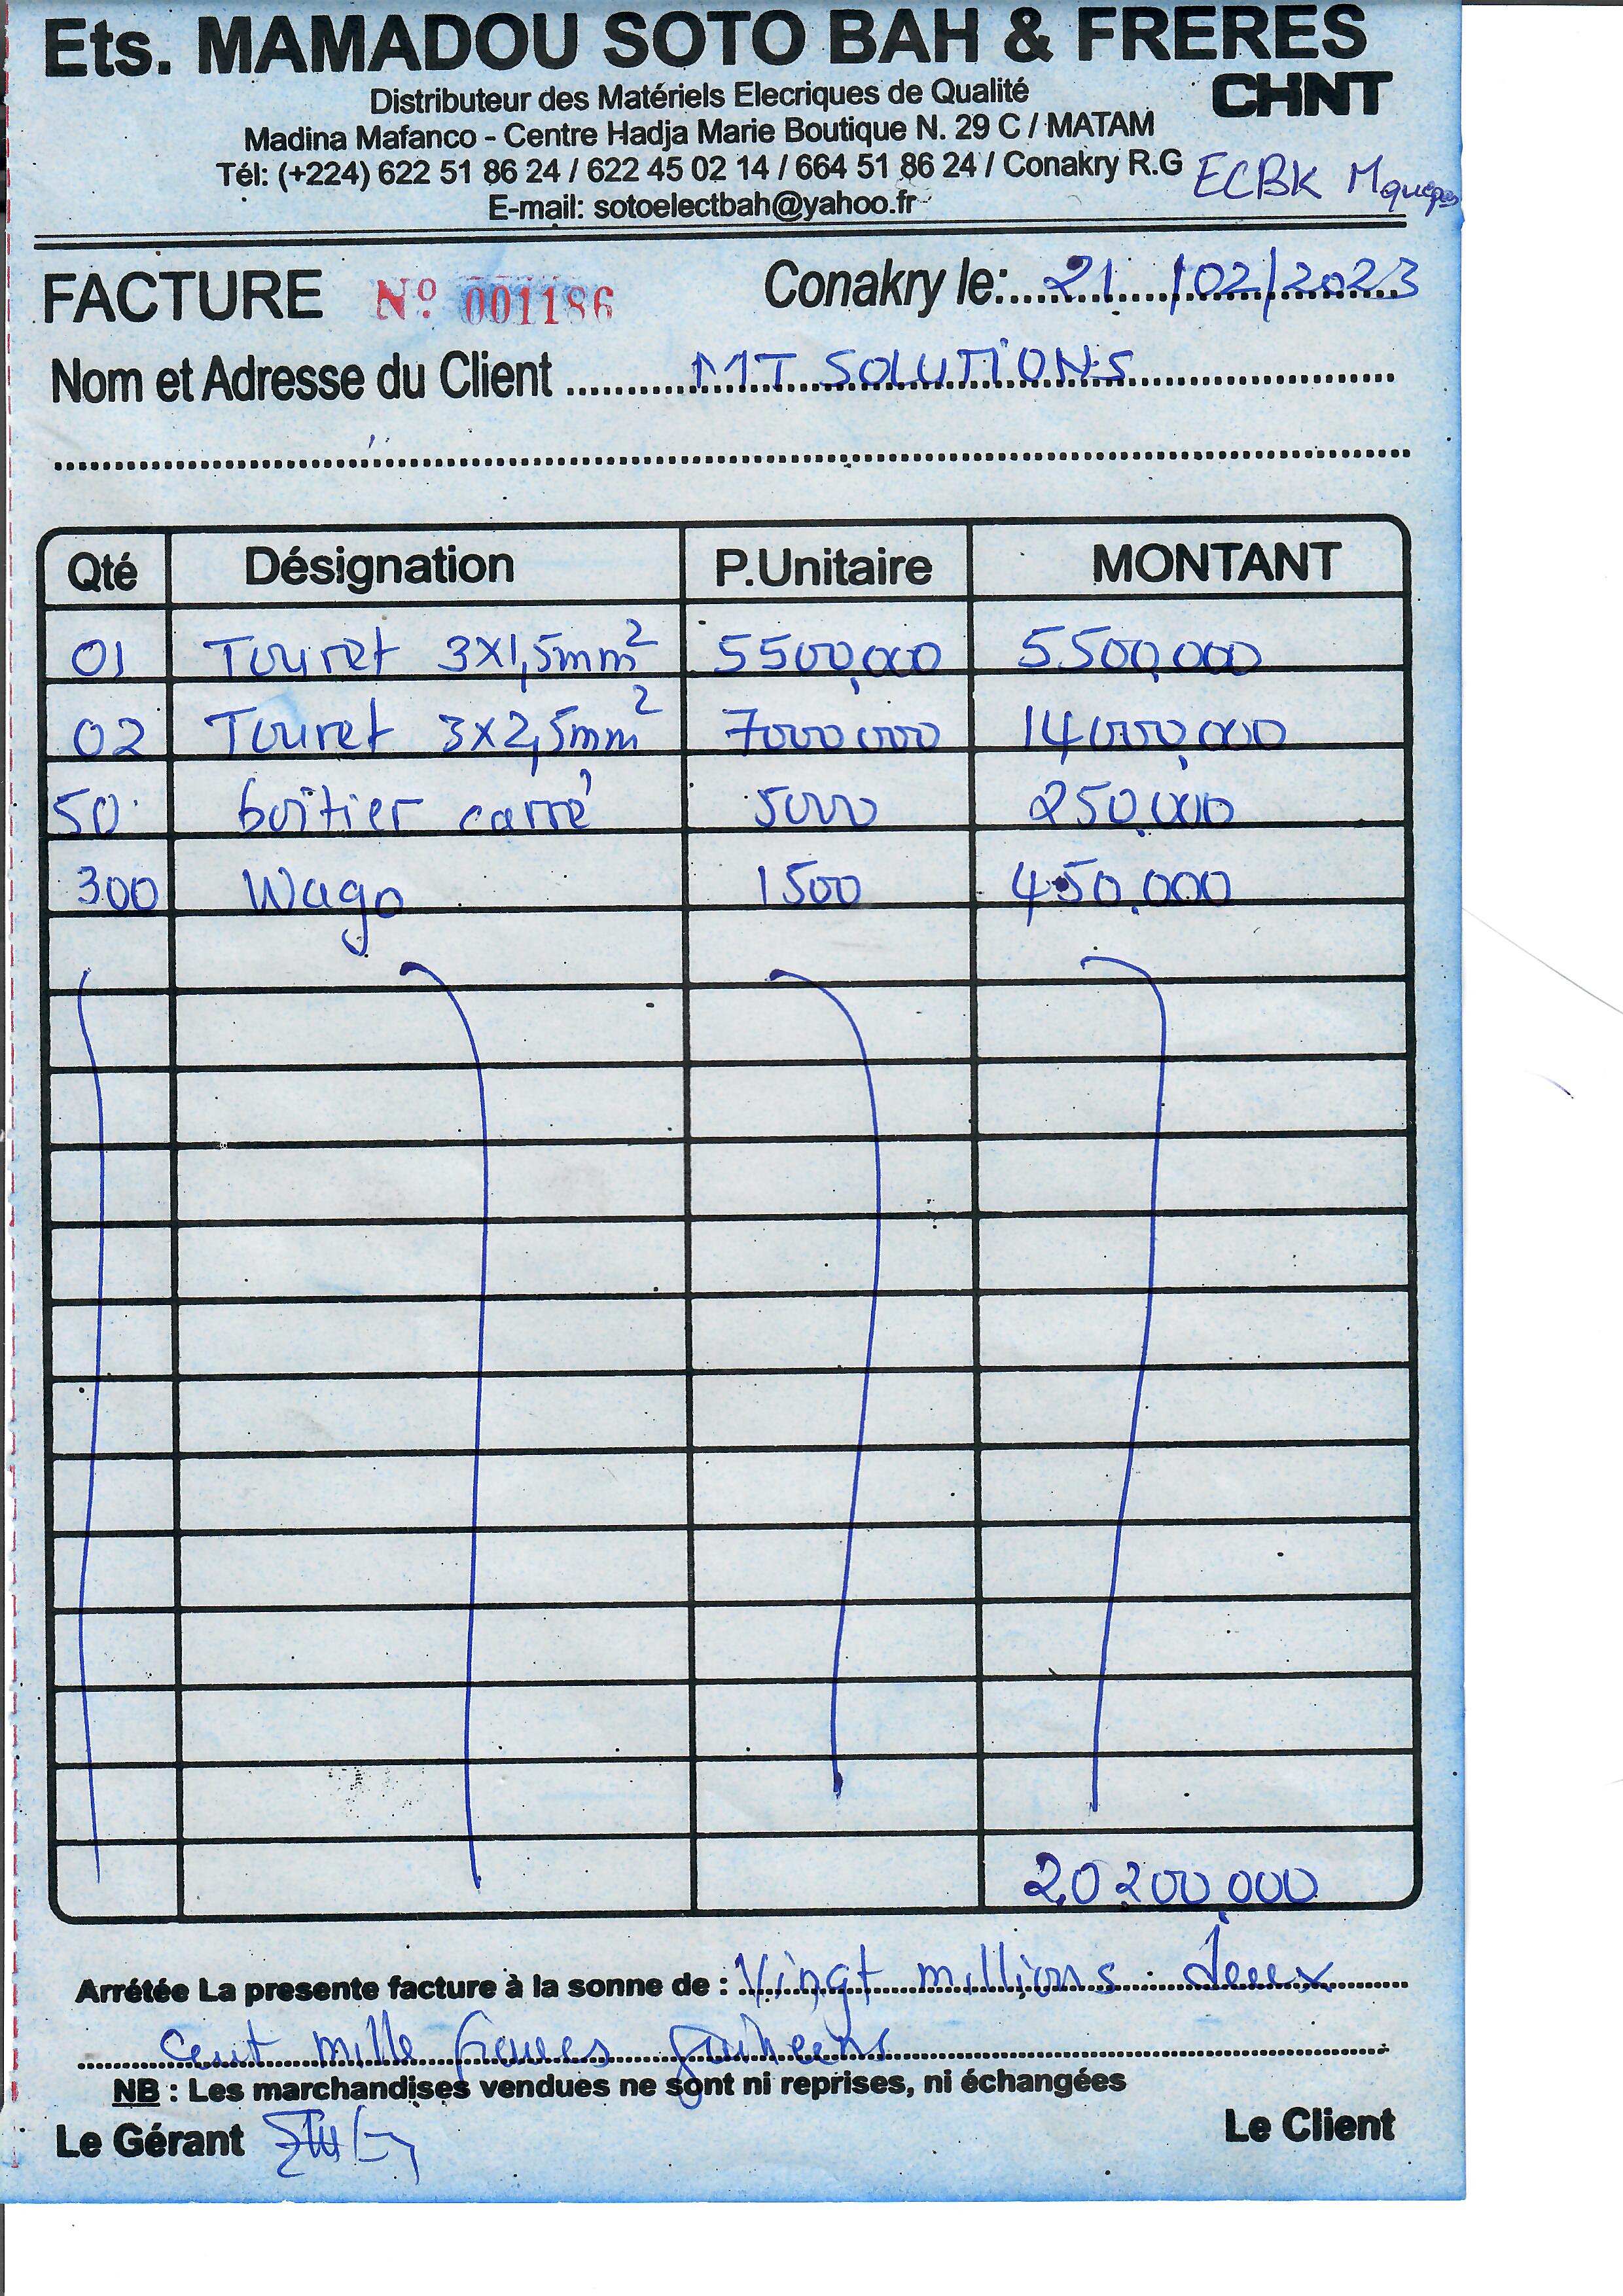 Ets. MAMADOU SOTO BAH & FRERES
Distributeur des Matériels Elecriques de Qualité
CHNT
Madina Mafanco - Centre Hadja Marie Boutique N. 29 C / MATAM
Tél: (+224) 622 51 86 24 / 622 45 02 14 / 664 51 86 24 / Conakry R.G
ECBK
E-mail: sotoelectbah@yahoo.fr
FACTURE Nº 001186 Conakry le: 21 /02/2023
Nom et Adresse du Client MT SOLUTIONS
Qté Désignation P.Unitaire MONTANT
01 Touret 3x1,5mm² 5500,000 5500,000
02 Touret 3x2,5mm² 7000000 14000,000
50 boîtier carré 5000 250.000
300 Wago 1500 450.000
20200,000
Arrétée La presente facture à la sonne de : Vingt millions deux
cent mille francs guineens
NB : Les marchandises vendues ne sont ni reprises, ni échangées
Le Gérant Le Client